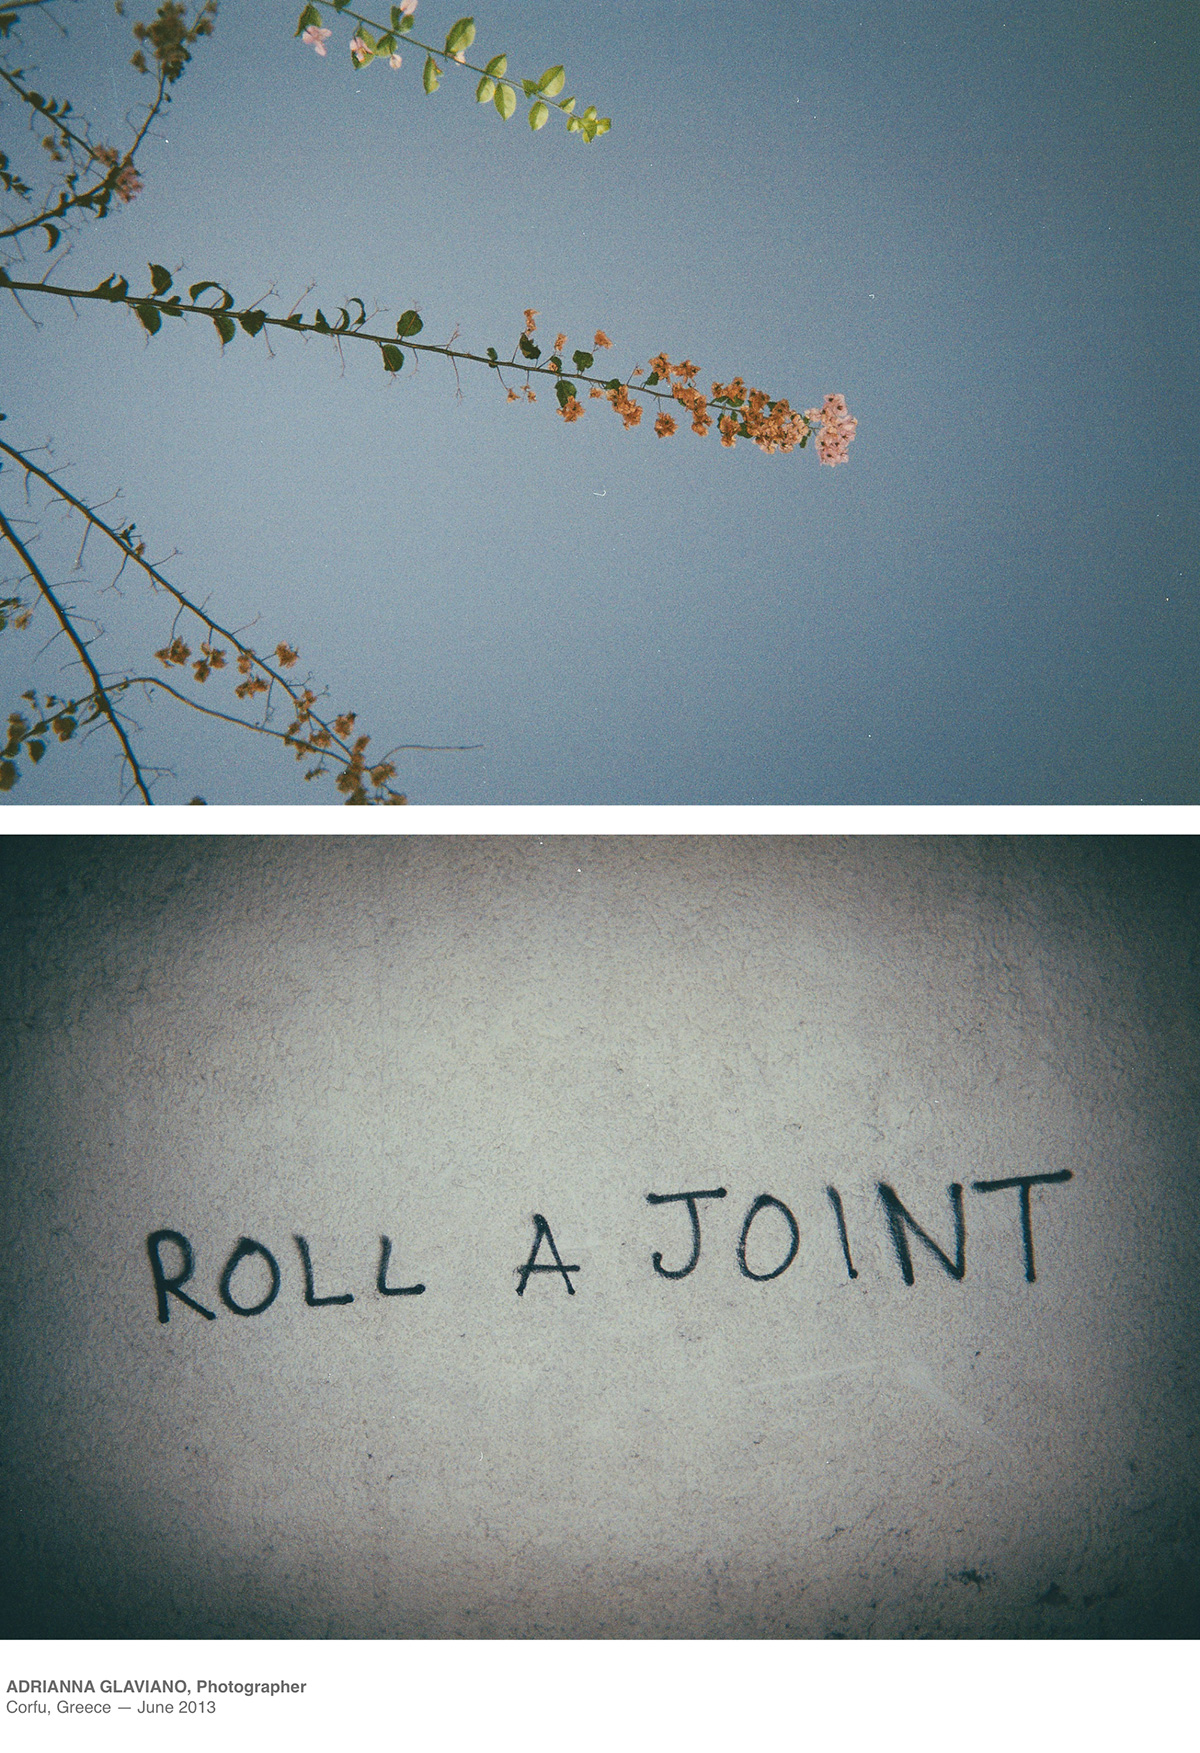 ROLL A JOINT
ADRIANNA GLAVIANO, Photographer
Corfu, Greece — June 2013